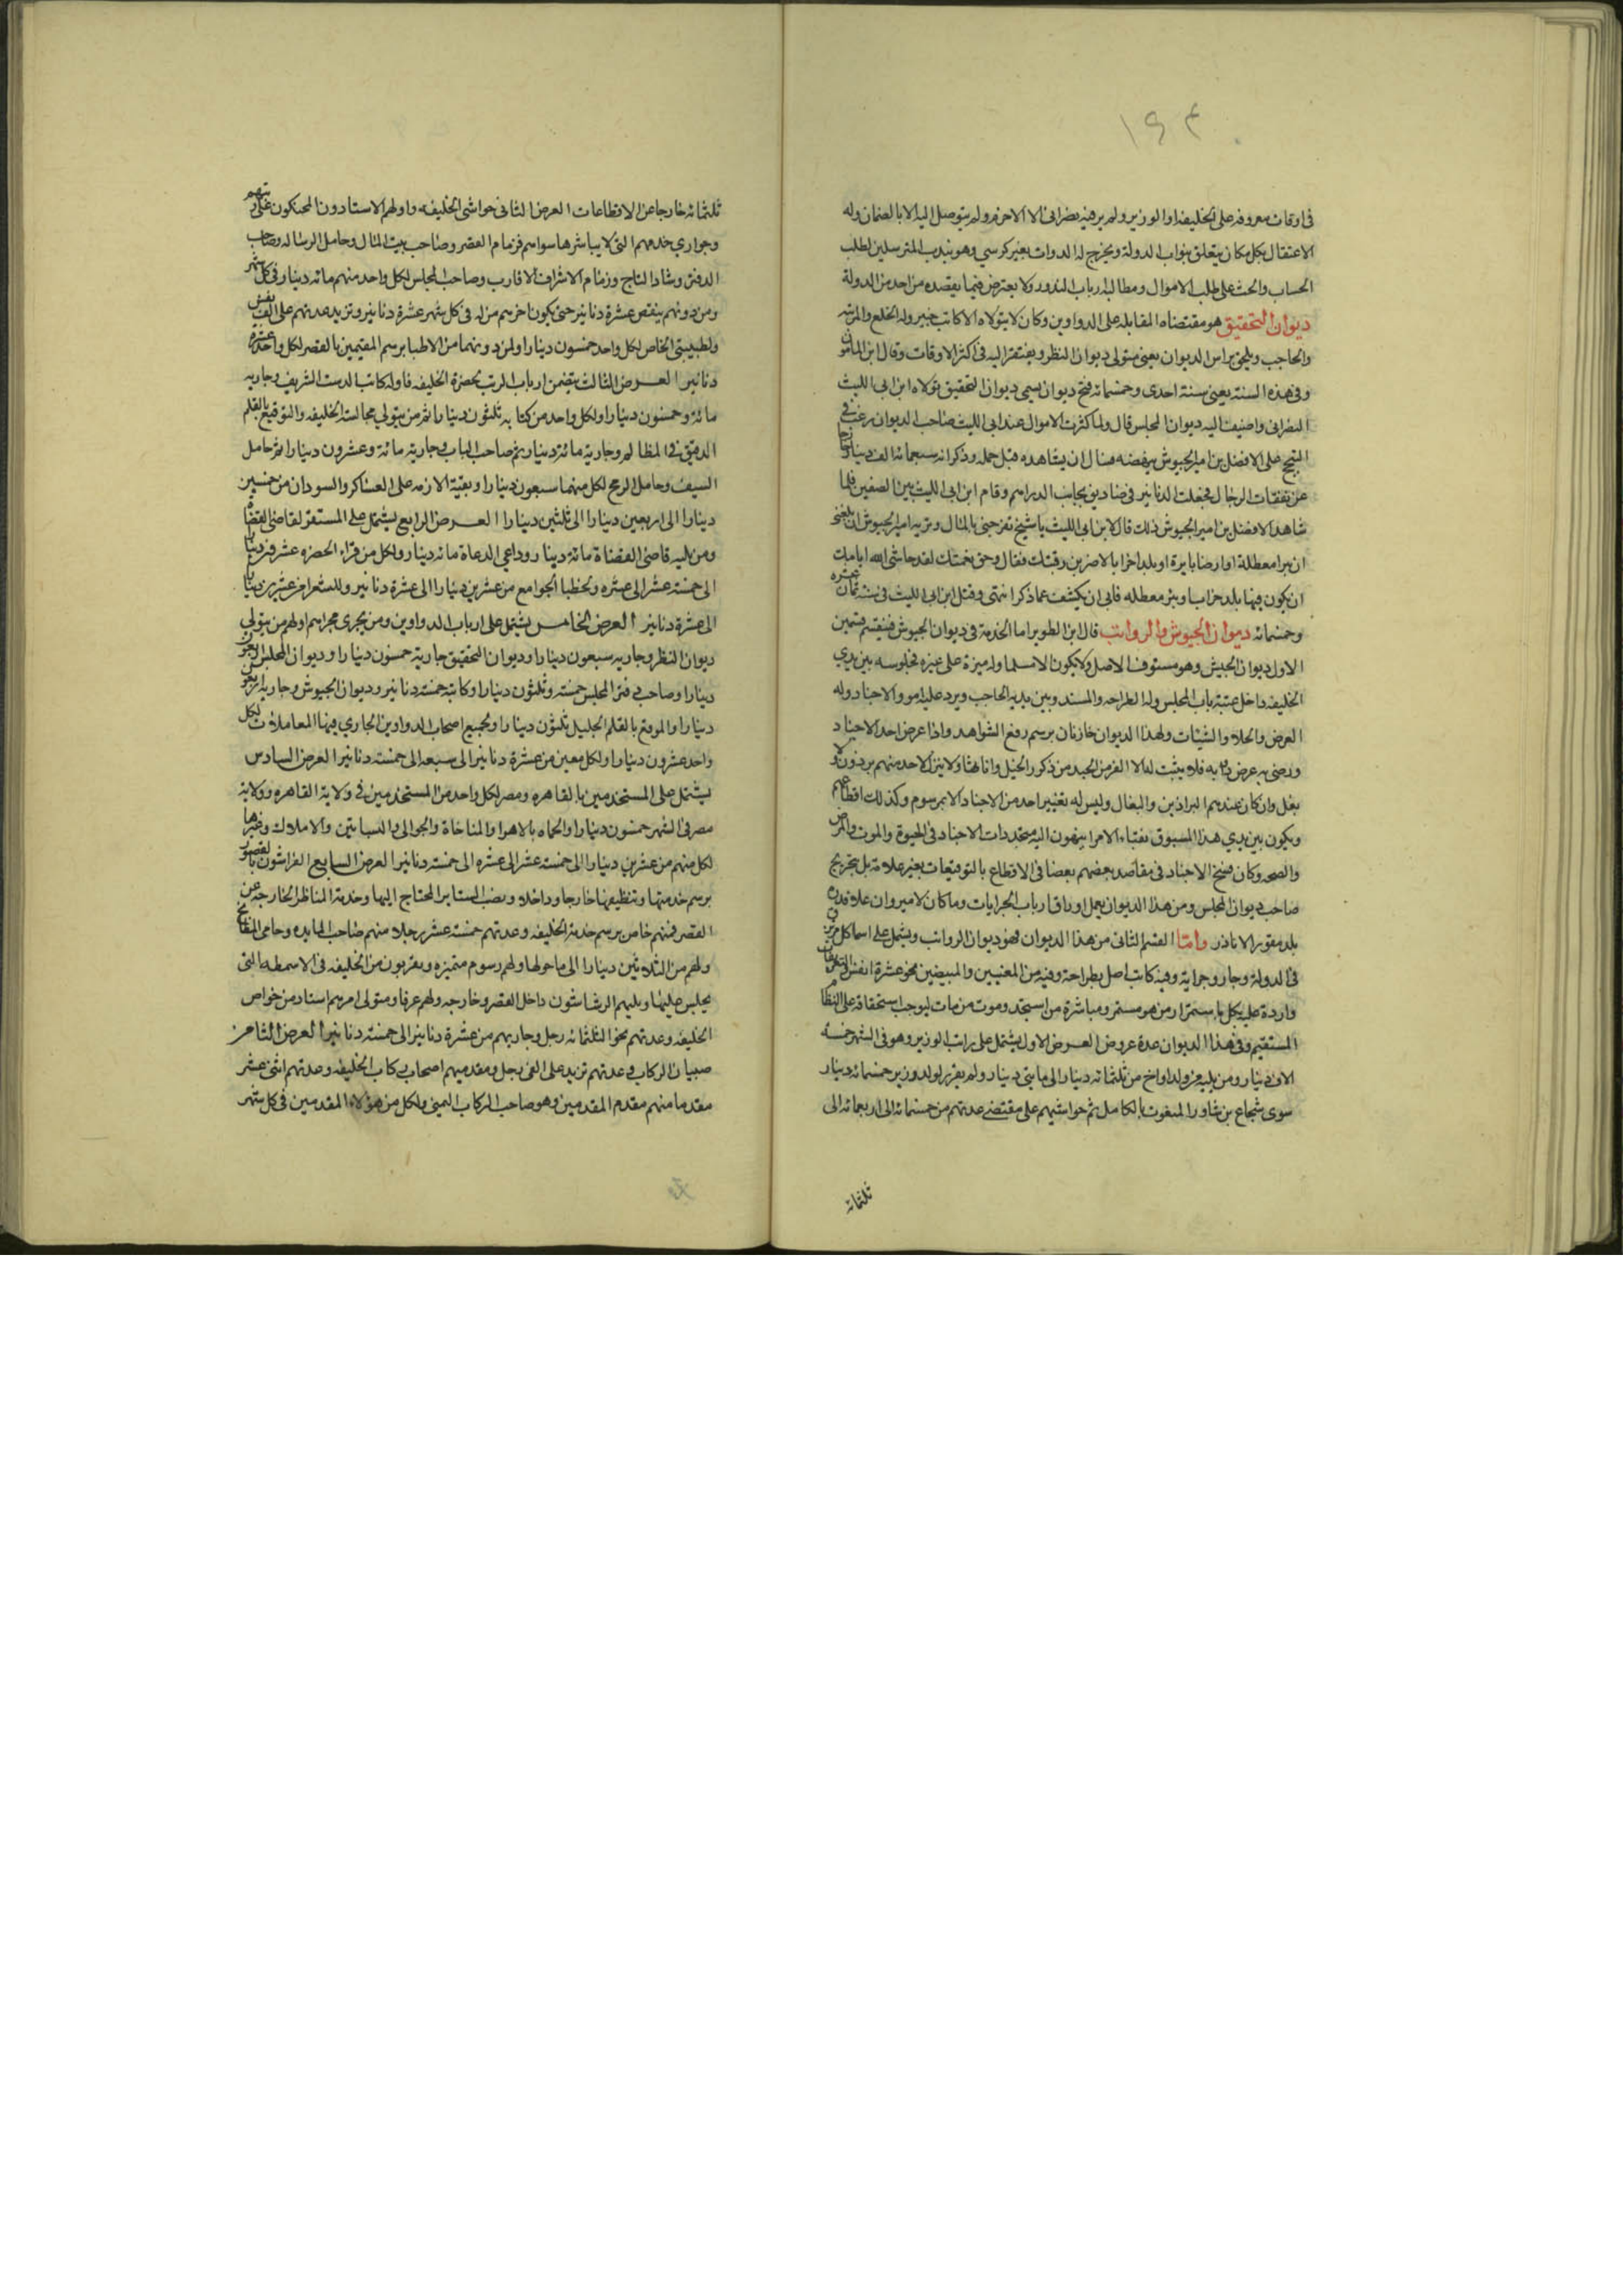 ١٩٤
في اوقات معروفه على الخليفه او الوزير ولم ير فيه نصراني الا الاحرم ولم يتوصل اليه الا بالضمان وله
الاعتقال بكل مكان يتعلق بنواب الدولة ويخرج له الدوات بغير كرسي وهو يندب المترسلين لطلب
الحساب والحث على طلب الاموال ومطالبه ارباب الدولة ولا يعترض فيما يقصده من احد من الدولة
ديوان التحقيق هو مقتضاه المقابله على الدواوين وكان لا يتولاه الا كاتب خبير وله الخلع والمرتبه
والحاجب ويلحق براس الديوان يعني متولي ديوان النظر ويفتقر اليه في اكثر الاوقات وقال ابن المامون
وفي هذه السنة يعني سنة احدى وخمسمائه فتح ديوان يسمى ديوان التحقيق تولاه ابن ابي الليث
النصراني واضيف اليه ديوان المجلس قال ولما كثرت الاموال عند ابي الليث صاحب الديوان رغب في
التبجح على الافضل بن امير الجيوش بنهضته فسال ان يشاهده قبل حمله وذكر انه سبعمائه الف دينار خارجا
عن نفقات الرجال فجعلت الدنانير في صناديق بجانب الدراهم وقام ابن ابي الليث بين الصفين فلما
شاهد الافضل بن امير الجيوش ذلك قال لابن ابي الليث يا شيخ تفرحني بالمال وتربه امير الجيوش ان بلغني
ان بيرا معطلة او ارضا بايرة او بلدا خرابا لاضربن رقبتك فقال وحق نعمتك لقد حاشى الله ايامك
ان يكون فيها بلد خراب او بير معطله فابى ان يكشف عما ذكر انتهى وقتل ابن ابي الليث في سنة ثمان عشره
وخمسمائه ديوان الجيوش والرواتب قال ابن الطوير اما الخدمة في ديوان الجيوش فينقسم قسمين
الاول ديوان الجيش وهو مستوف الاصل ولا يكون الا مسلما وله ميزة على غيره لجلوسه بين يدي
الخليفه داخل عتبة باب المجلس وله الطراحه والمسند وبين يديه الحاجب ويرد عليه امور الاجناد وله
العرض والحلا والشيات ولهذا الديوان خازنان برسم رفع الشواهد واذا عرض احد الاجناد
ورضي به عرض دابه فلا يثبت له الا الفرس الجيد من ذكور الخيل واناثها ولا يترك لاحد منهم برذون ولا
بغل وان كان عندهم البراذين والبغال وليس له تغيير احد من الاجناد الا بمرسوم وكذلك اقطاعهم
ويكون بين يدي هذا المستوفي نقباء الامرا ينهون اليه متجددات الاجناد في الحيوة والموت والمرض
والصحه وكان فسح الاجناد في مقاصد بعضهم بعضا في الاقطاع بالتوقيعات بغير علامة بل بتخريج
صاحب ديوان المجلس ومن هذا الديوان يعمل اوراق ارباب الجرايات وما كان لامير وان علا قدره
بلد مقور الا نادر واما القسم الثاني من هذا الديوان فهو ديوان الرواتب ويشتمل على اسما كل مرتزق
في الدولة وجار وجراية وفيه كاتب اصل بطراحة وفيه من المعنيين والمبيضين نحو عشرة انفس التعريفات
واردة عليه بكل باستمرار من هو مستمر ومباشرة من استجد وموت من مات ليوجب استحقاقه على النظام
المستقيم وفي هذا الديوان عدة عروض العرض الاول يشتمل على راتب الوزير وهو في الشهر خمسة
الاف دينار ومن يليه من ولد او اخ من ثلثمائه دينار الى مايتي دينار ولم يقرر لولد وزير خمسمائه دينار
سوى شجاع بن شاور المنعوت بالكامل ثم حواشيهم على مقتضى عدتهم من خمسمائه الى اربعمائه الى
ثلثمائه
ثلثمائه خارجا عن الاقطاعات العرض الثاني حواشي الخليفه واولهم الاستادون المحنكون على رتبهم
وجواري خدمهم التي لا يباشرها سواهم فزمام القصر وصاحب بيت المال وحامل الرساله وصاحب
الدفتر وشاد التاج وزمام الاشراف الاقارب وصاحب المجلس لكل واحد منهم مائه دينار في كل شهر
ومن دونهم ينقص عشرة دنانير حتى يكون اخرهم من له في كل شهر عشرة دنانير وتزيد عدتهم على الف نفس
ولطبيبي الخاص لكل واحد خمسون دينارا ولمن دونهما من الاطبا برسم المقيمين بالقصر لكل واحد عشرة
دنانير العرض الثالث يتضمن ارباب الرتب بحضرة الخليفه فاوله كاتب الدست الشريف وجاريه
مائة وخمسون دينارا ولكل واحد من كتابه ثلثون دينارا ثم من يتولى مجالسة الخليفه والتوقيع بالقلم
الدقيق في المظالم وجارية مائة دينار ثم صاحب الباب وجارية مائة وعشرون دينارا ثم حامل
السيف وحامل الرمح لكل منهما سبعون دينارا وبقية الازمه على العساكر والسودان من خمسين
دينارا الى اربعين دينارا الى ثلثين دينارا العرض الرابع يشتمل على المستقر لقاضي القضاه
ومن يليه قاضي القضاة مائة دينار وداعي الدعاة مائه دينار ولكل من قراء الحضره عشرون دينارا
الى خمسة عشر الى عشره ولخطبا الجوامع من عشرين دينارا الى عشرة دنانير وللشعرا من عشرين دينارا
الى عشرة دنانير العرض الخامس يشتمل على ارباب الدواوين ومن يجري مجراهم اولهم من يتولى
ديوان النظر وجاريه سبعون دينارا وديوان التحقيق جارية خمسون دينارا وديوان المجلس اربعون
دينارا وصاحب دفتر المجلس خمسة وثلثون دينارا وكاتبه خمسة دنانير وديوان الجيوش وجاريه اربعون
دينارا والموقع بالقلم الجليل ثلثون دينارا ولجميع اصحاب الدواوين الجاري فيها المعاملات لكل
واحد عشرون دينارا ولكل معين من عشرة دنانير الى سبعه الى خمسة دنانير العرض السادس
يشتمل على المستخدمين بالقاهره ومصر لكل واحد من المستخدمين في ولاية القاهره وولاية
مصر في الشهر خمسون دينارا والحماه بالاهرا والمناخاة والجوالي والبساتين والاملاك وغيرها
لكل منهم من عشرين دينارا الى خمسة عشر الى عشره الى خمسة دنانير العرض السابع الفراشون بالقصور
برسم خدمتها وتنظيفها خارجا وداخلا ونصب الستاير المحتاج اليها وخدمة المناظر الخارجه عن
القصر فمنهم خاص برسم خدمة الخليفه وعدتهم خمسة عشر رجلا منهم صاحب المايده وحامي المطابخ
ولهم من الثلاثين دينارا الى ما حولها ولهم رسوم متميزه ويقربون من الخليفه في الاسمطه التي
يجلس عليها ويليهم الرشاشون داخل القصر وخارجه ولهم عرفا ومتولي امرهم استاد من خواص
الخليفه وعدتهم نحو الثلثمائه رجل وجاريهم من عشرة دنانير الى خمسة دنانير العرض الثامن
صبيان الركاب وعدتهم تزيد على الفي رجل ومقدميهم اصحاب ركاب الخليفه وعدتهم اثنى عشر
مقدما منهم مقدم المقدمين وهو صاحب الركاب اليمنى ولكل من هؤلاء المقدمين في كل شهر